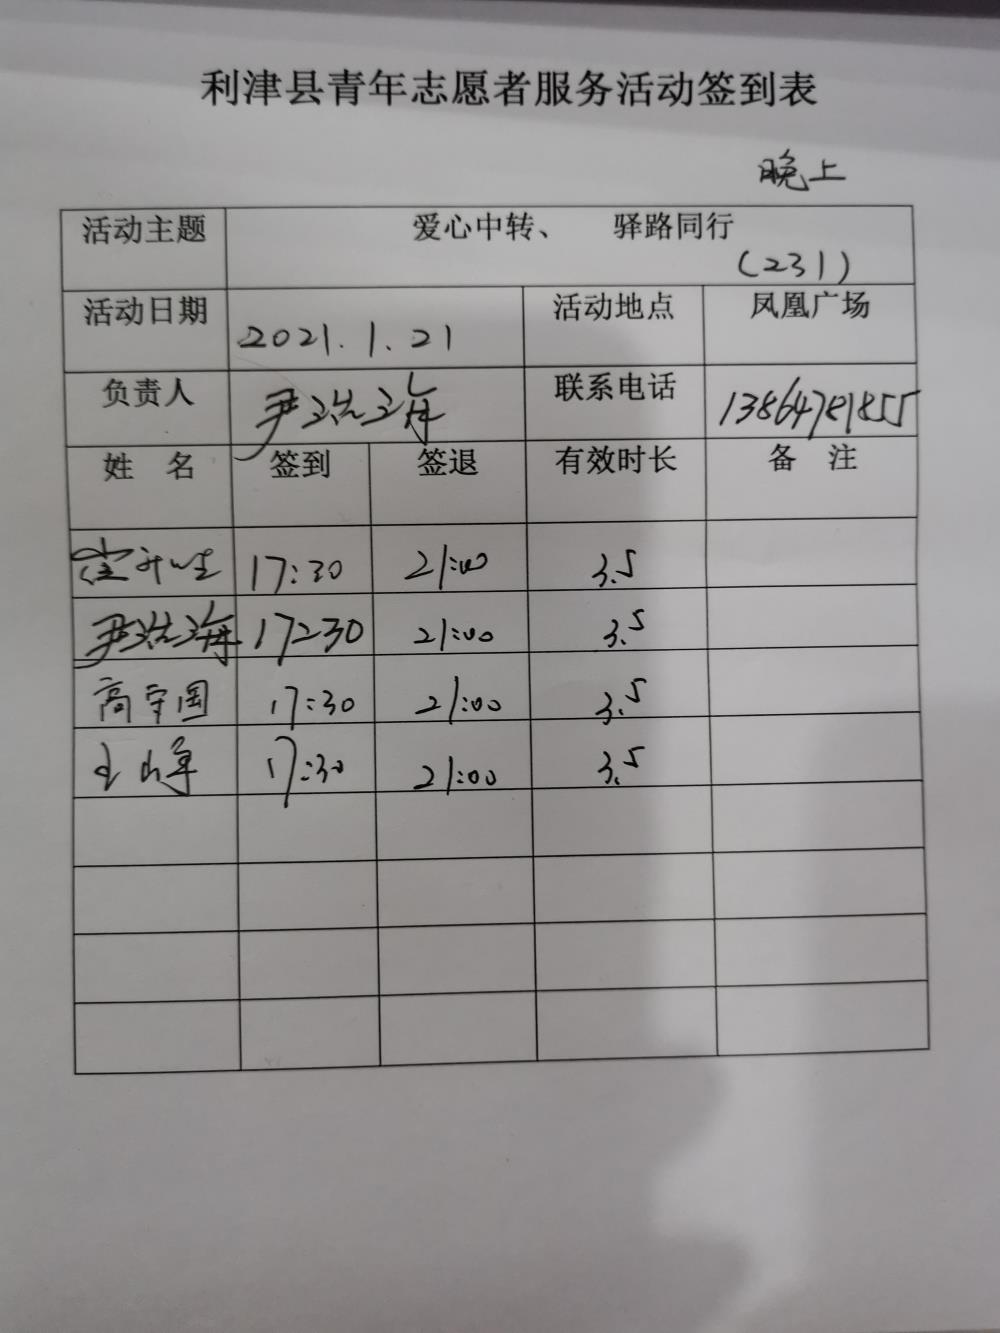 利津县青年志愿者服务活动签到表
晚上
活动主题 爱心中转、 驿路同行
(231)
活动日期 2021.1.21 活动地点 凤凰广场
负责人 尹浩海 联系电话 13864781855
姓 名 签到 签退 有效时长 备 注
17:30 21:00 3.5
尹浩海 17:30 21:00 3.5
高守国 17:30 21:00 3.5
17:30 21:00 3.5